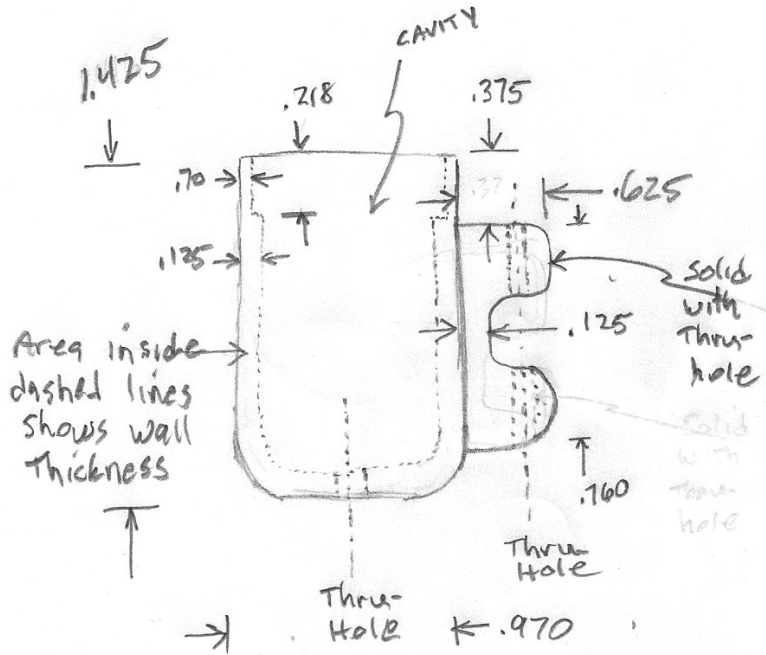 CAVITY
1.425
.218
.375
.70
.37
.625
.125
solid
with
Thru-
hole
.125
Area inside
dashed lines
shows wall
Thickness
solid
with
thru-
hole
.760
Thru-
Hole
Thru-
Hole
.970